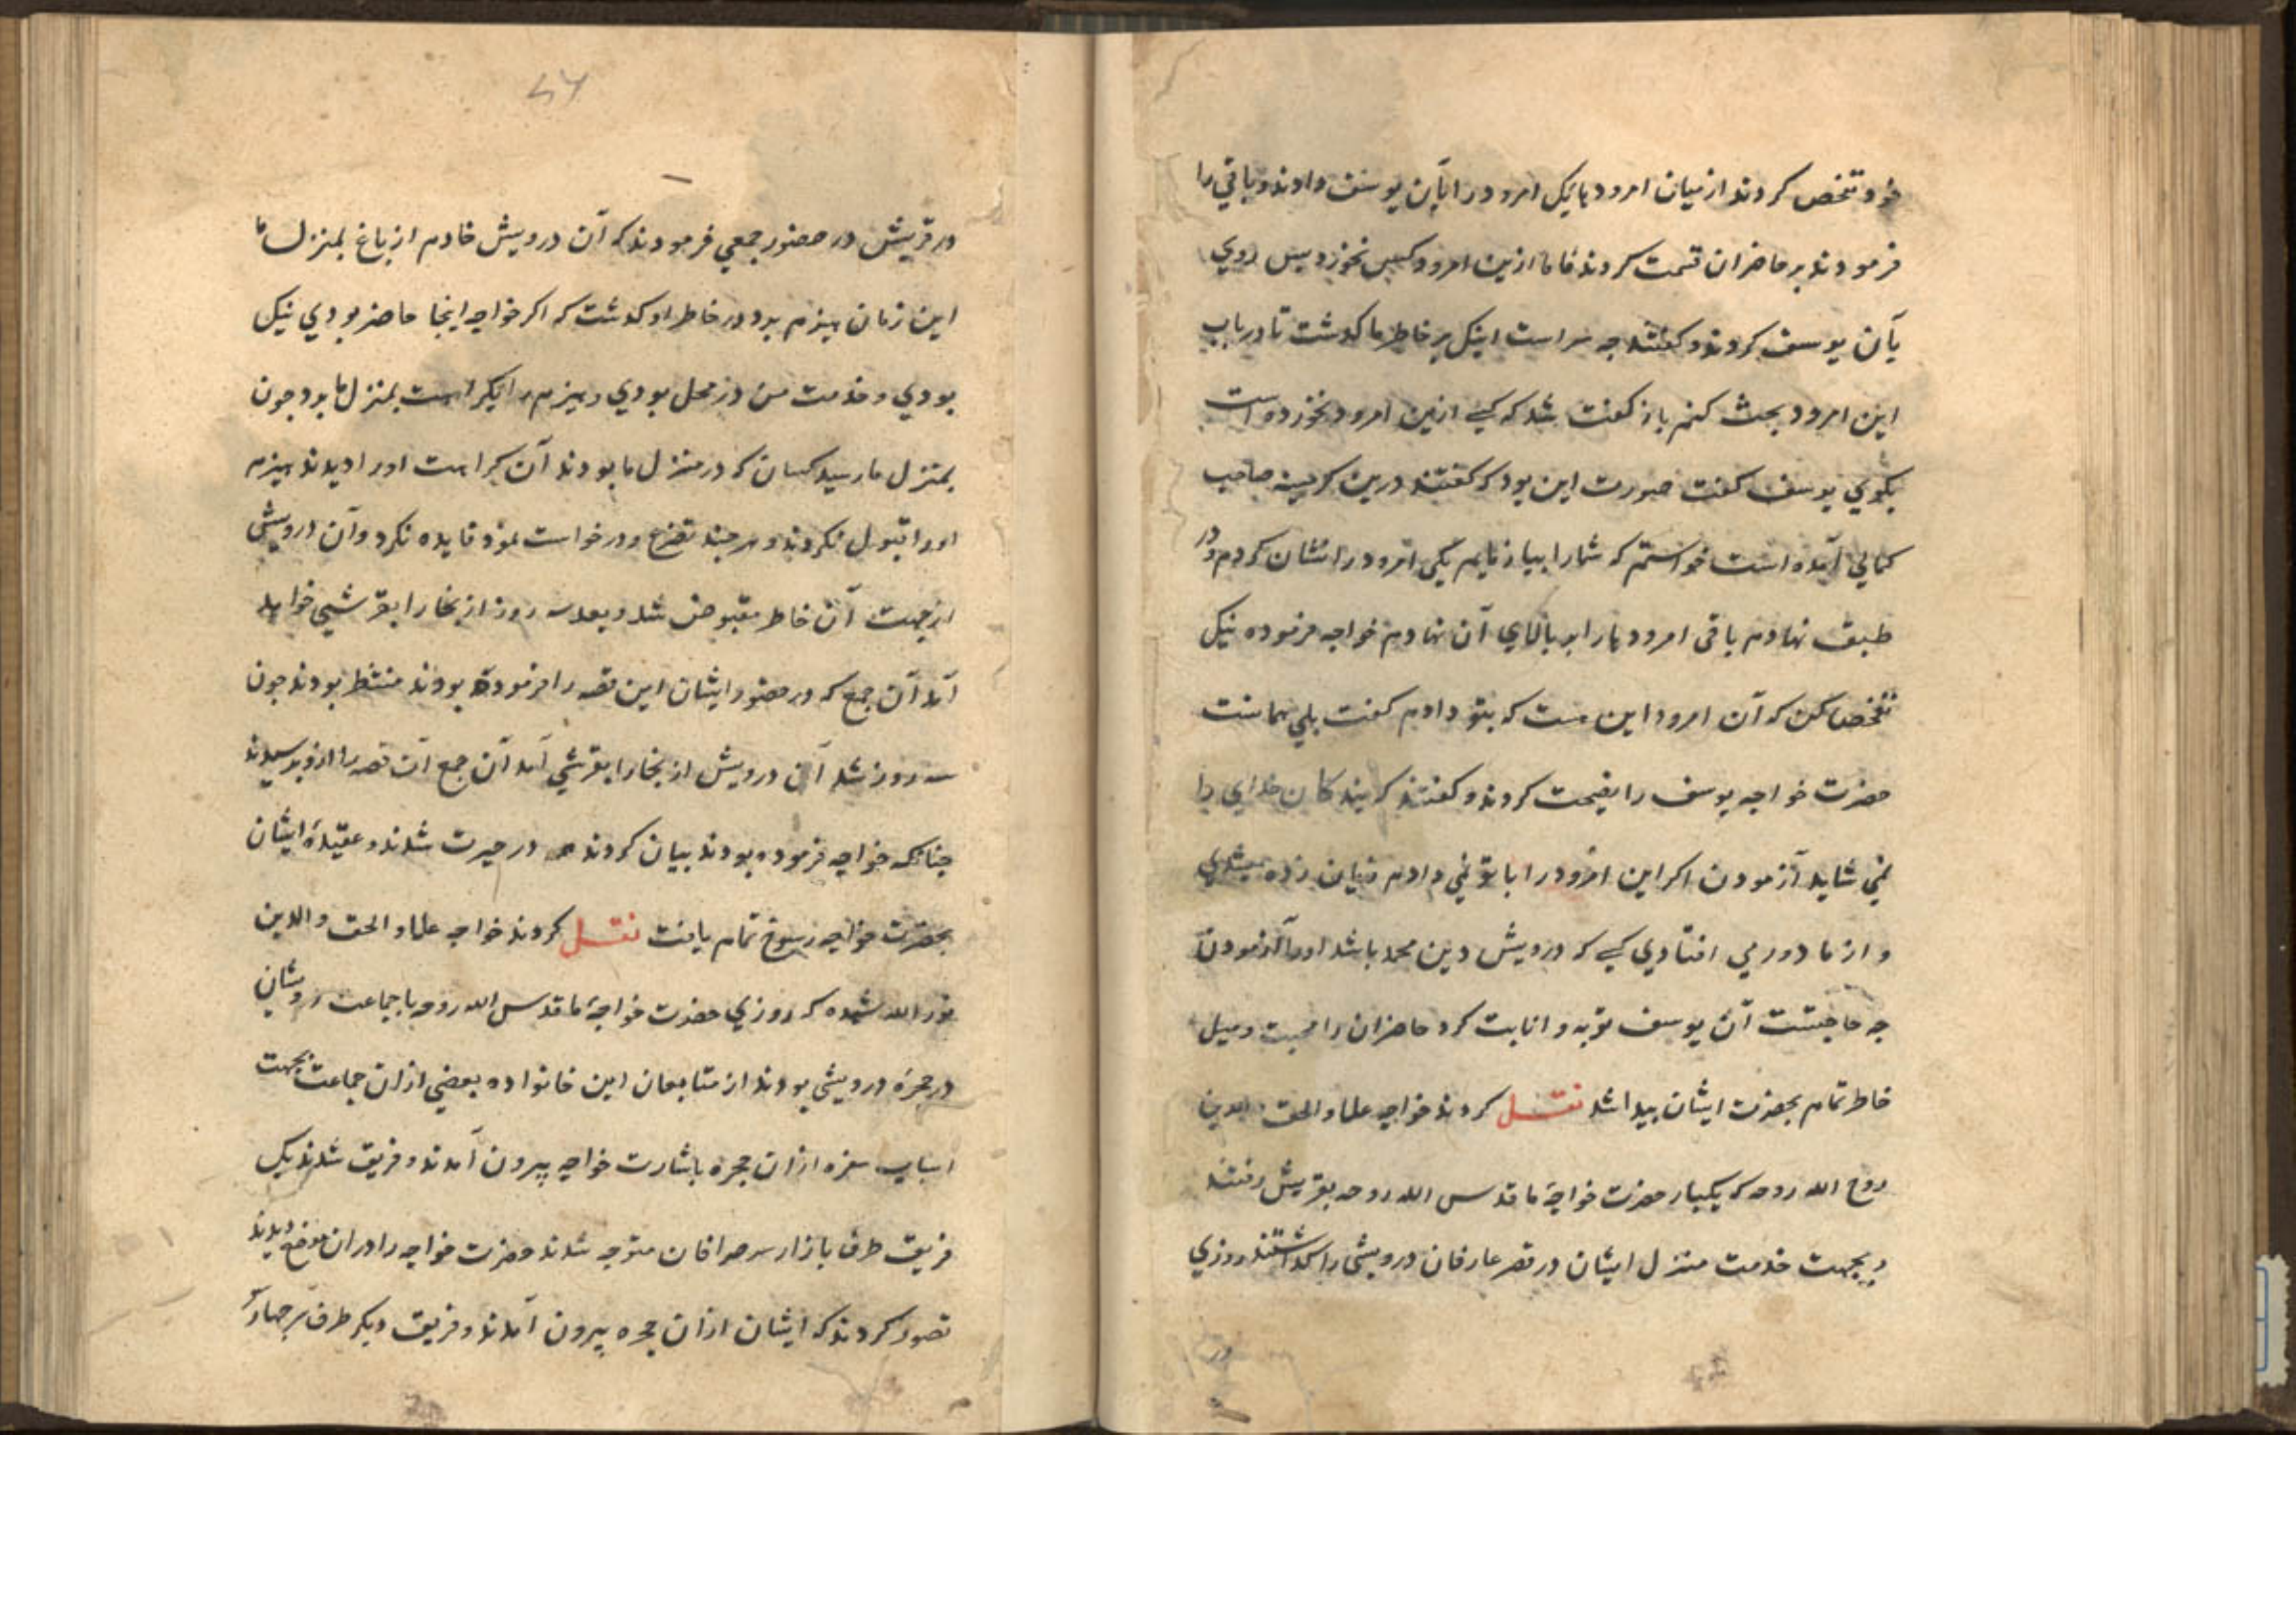 خود تفخص کردند از میان امرودها یک امرود را بآن یوسف دادند و باقي را
فرمودند بر حاضران قسمت کردند فاما ازین امرود کسی نخورد پس روي
بآن یوسف کردند و گفتند چه سر است اینک بر خاطر ما کدشت تا در باب
این امرود بحث کنم باز کفت شد که کسي ازین امرود نخورده است
بکوي یوسف کفت صورت این بود که کفتند درین کرمینه صاحب
کمالي آمده است خواستم که شما را بیازمایم یکی امرود را نشان کردم و در
طبق نهادم باقی امرودها را بر بالاي آن نهادم خواجه فرموده نیک
تفخص کن که آن امرود این هست که بتو دادم کفت بلي همانست
حضرت خواجه یوسف را نصیحت کردند و کفتند که بندکان خداي را
نمي شاید آزمودن اکر این امرود را با تو نمي دادم زیان زده میشدي
و از ما دور مي افتادي کسي که درویش دین محمد باشد او را آزمودن
چه حاجتست آن یوسف توبه و انابت کرد حاضران را محبت و میل
خاطر تمام بحضرت ایشان پیدا شد نقل کردند خواجه علاء الحق والدین
روح الله روحه که یکبار حضرت خواجهٔ ما قدس الله روحه بقریش رفتند
و بجهت خدمت منزل ایشان در قصر عارفان درویشی را کداشتند روزي
در
در قریش در حضور جمعي فرمودند که آن درویش خادم از باغ بمنزل ما
این زمان هیزم برد در خاطر او کدشت که اکر خواجه اینجا حاضر بودي نیک
بودي و خدمت من در محل بودي و هیزم را بکراهت بمنزل ما برد چون
بمنزل ما رسید کسان که در منزل ما بودند آن کراهت او را دیدند هیزم
او را قبول نکردند و هر چند تضرع و درخواست نمود فایده نکرد و آن درویش
از جهت آن خاطر مقبوض شد و بعد سه روز از بخارا بقرشي خواهد
آمد آن جمع که در حضور ایشان این قصه را فرموده بودند منتظر بودند چون
سه روز شد آن درویش از بخارا بقرشي آمد آن جمع آن قصه را ازو پرسیدند
چنانکه خواجه فرموده بودند بیان کردند در حیرت شدند و عقیدهٔ ایشان
بحضرت خواجه رسوخ تمام یافت نقل کردند خواجه علاء الحق والدین
نور الله مشهده که روزي حضرت خواجهٔ ما قدس الله روحه با جماعت درویشان
در حجره درویشي بودند از متابعان این خانواده بعضي ازان جماعت بجهت
اسباب سفره ازان حجره باشارت خواجه بیرون آمدند و فریق شدند یک
فریق طرف بازار سر صرافان متوجه شدند حضرت خواجه را دران موضع دیدند
تصور کردند که ایشان ازان حجره بیرون آمدند و فریق دیکر طرف بر چهار سو